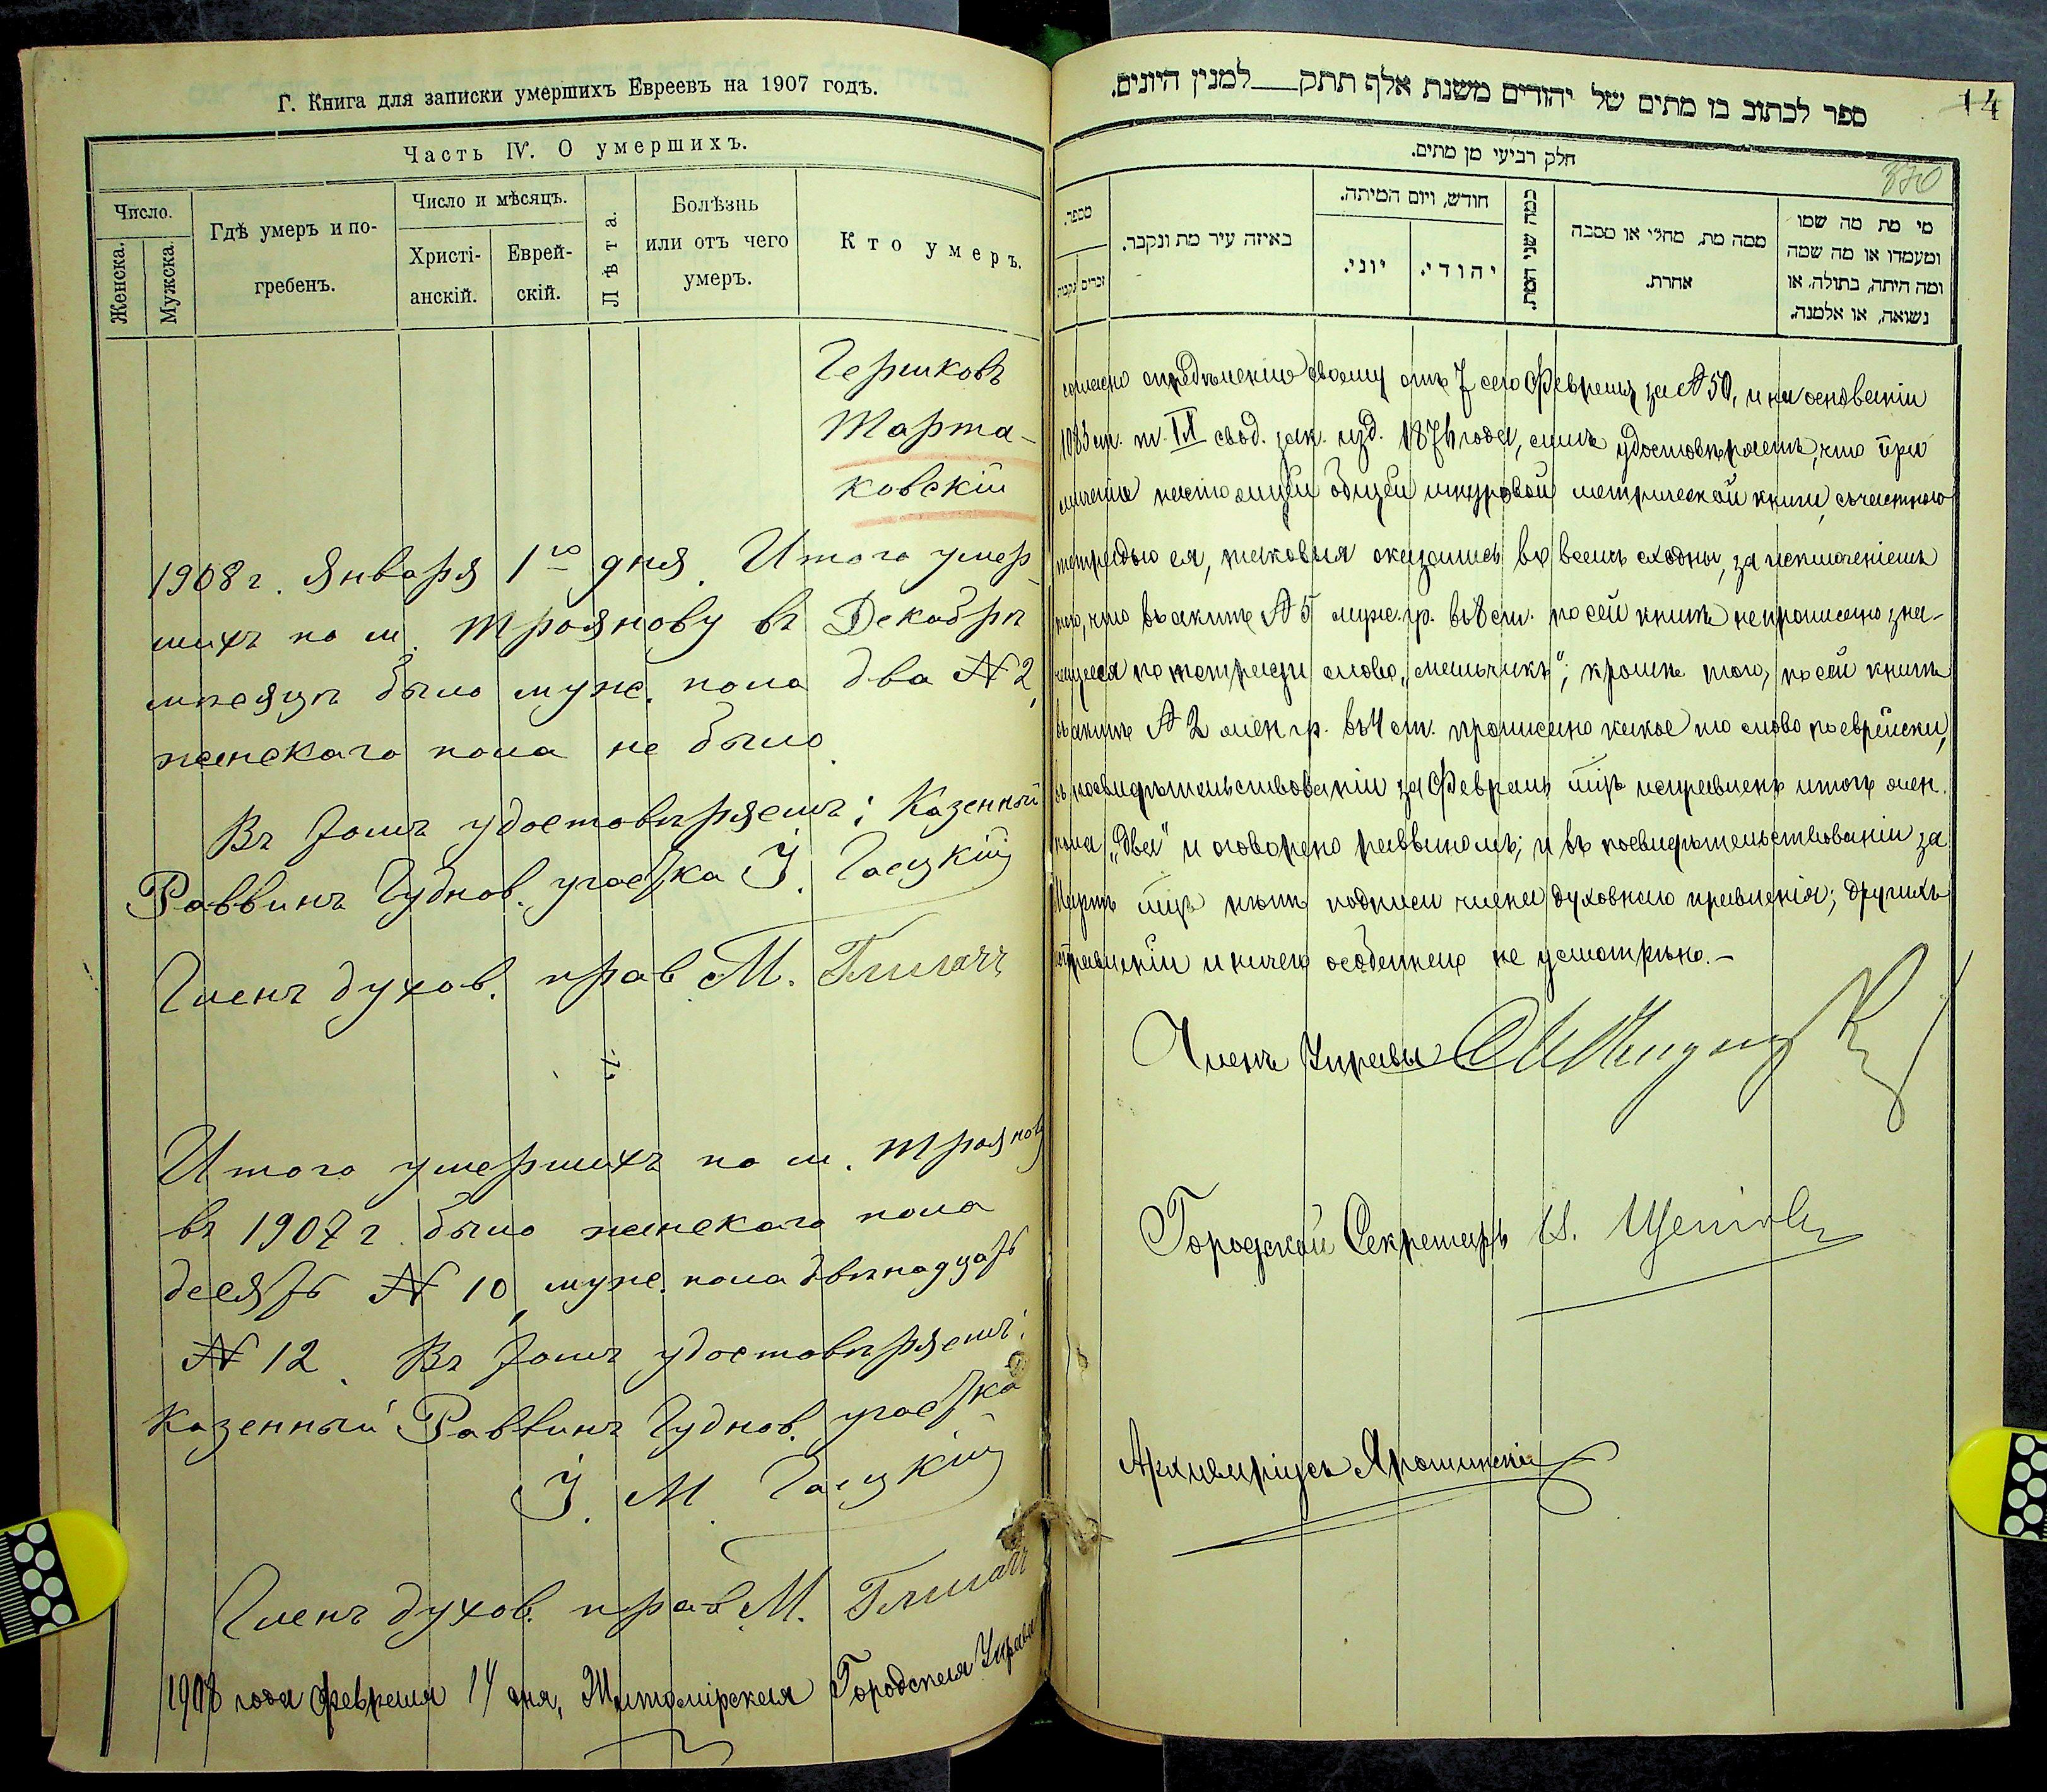 Г. Книга для записки умершихъ Евреевъ на 1907 годъ.
Часть IV. О умершихъ.
Число.
Женска.
Мужска.
Гдѣ умеръ и по-
гребенъ.
Число и мѣсяцъ.
Христі-
анскій.
Еврей-
скій.
Лѣта.
Болѣзнь
или отъ чего
умеръ.
Кто умеръ.
Гершковъ
Марта-
ковскій
1908 г. Января 1го дня. Итого умер-
шихъ по м. Троянову въ Декабрѣ
мѣсяцѣ было муж. пола два № 2,
женскаго пола не было.
Въ томъ удостовѣряемъ: Казенный
Раввинъ Чуднов. участка
Членъ духов. прав. М.
Итого умершихъ по м. Троянову
въ 1907 г. было женскаго пола
десять № 10, муж. пола двѣнадцать
№ 12. Въ томъ удостовѣряемъ:
Казенный Раввинъ Чуднов. участка
Членъ духов. прав. М.
1908 года февраля 14 дня, Житомірская Городская Управа
14
ספר לכתוב בו מתים של יהודים משנת אלף תתק למנין היונים.
חלק רביעי מן מתים.
370
מספר.
זכרים
נקבות
באיזה עיר מת ונקבר.
חודש, ויום המיתה.
יוני.
יהודי.
כמה שני המת.
ממה מת, מחלי או מסבה
אחרת.
מי מת מה שמו
ומעמדו או מה שמה
ומה היתה, בתולה, או
נשואה, או אלמנה.
согласно опредѣленію своему отъ 7 сего Февраля за № 50, и на основаніи
1083 ст. т. IX свод. зак. изд. 1876 года, симъ удостовѣряетъ, что при
сличеніи настоящей общей шнуровой метрической книги, съ частною
тетрадью ея, таковыя оказались во всемъ сходны, за исключеніемъ
того, что въ актѣ № 5 муж. гр. въ 8 ст. по сей книгѣ не прописано зна-
чащееся по тетради слово „мальчикъ"; кромѣ того, по сей книгѣ
въ актѣ № 2 жен. гр. въ 4 ст. прописано какое то слово по еврейски,
въ засвидѣтельствованіи за Февраль мцъ исправленъ итогъ жен.
пола „два" и оговорено раввиномъ; и въ засвидѣтельствованіи за
Мартъ мцъ нѣтъ подписи члена духовнаго правленія; другихъ
исправленій и ничего особеннаго не усмотрѣно.-
Членъ Управы
Городской Секретарь
Архиваріусъ Ярошинскій